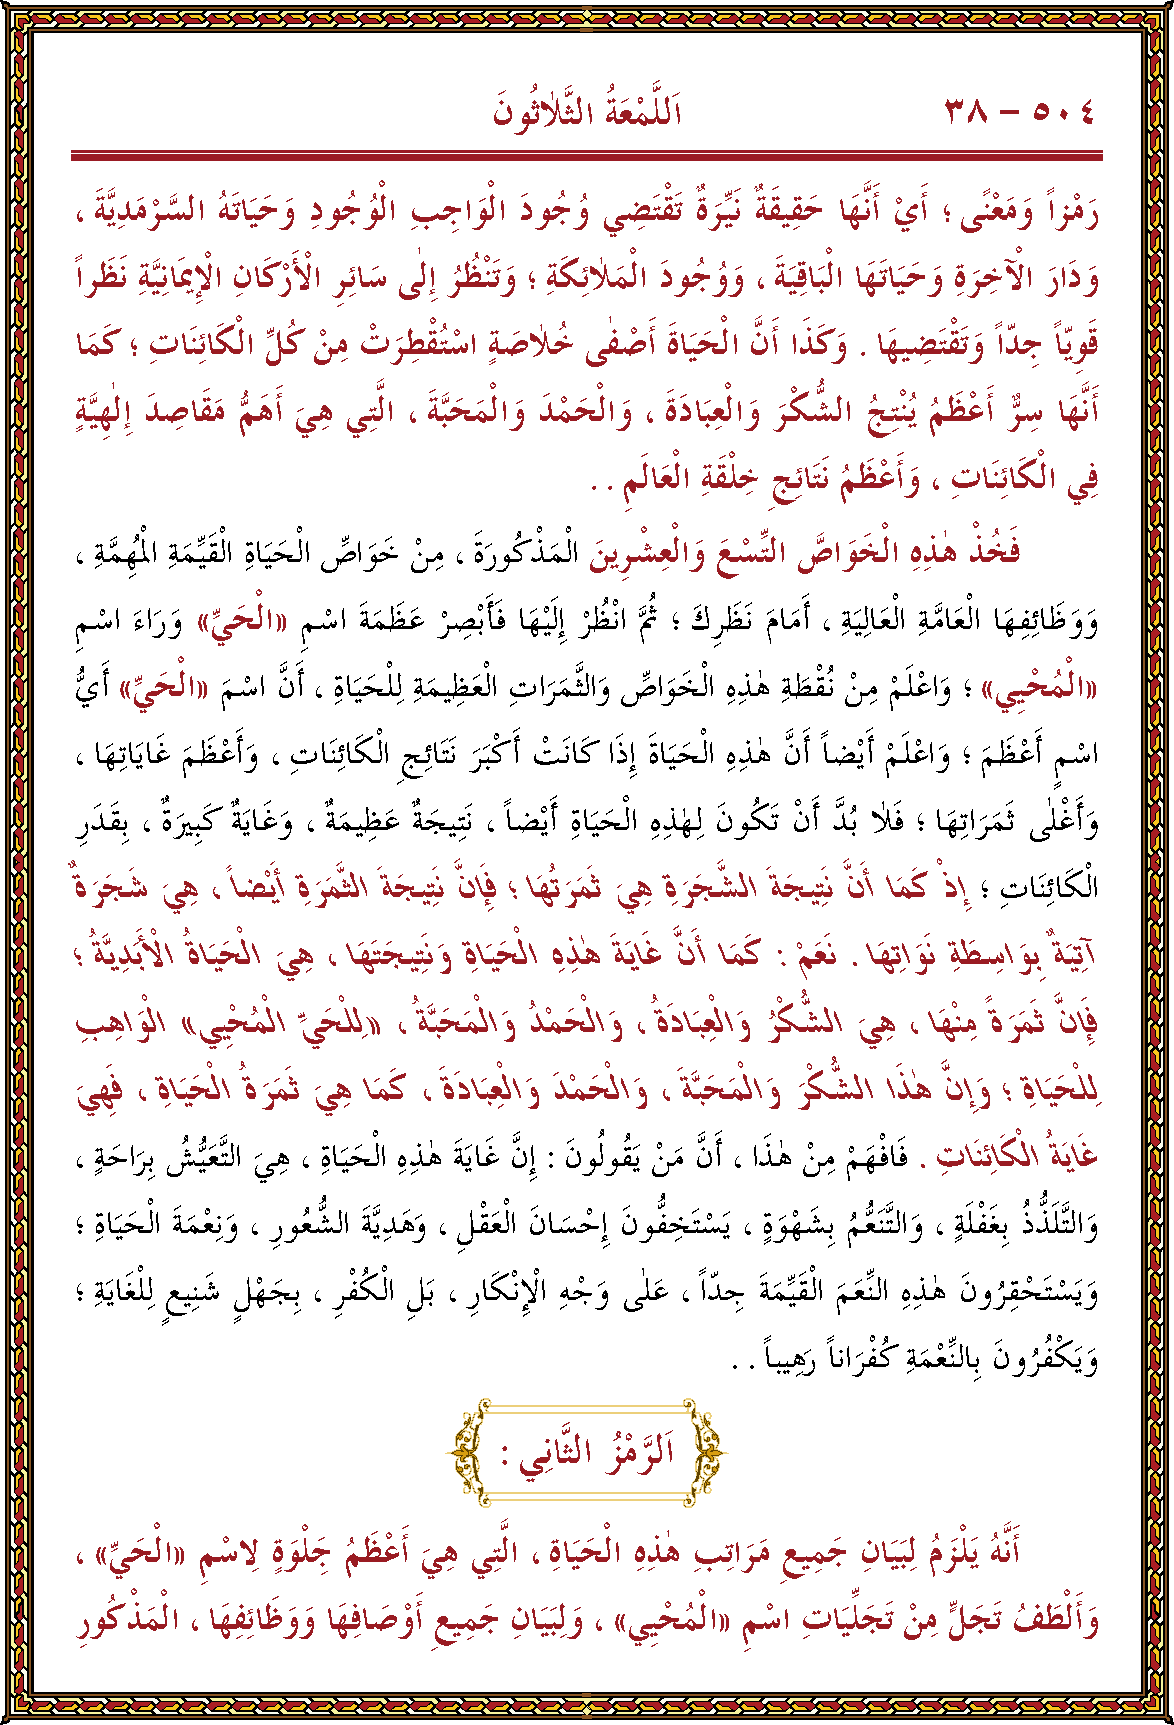 ٥٠٤ - ٣٨
اَللَّمْعَةُ الثَّلاٰثُونَ
رَمْزاً وَمَعْنًى ؛ أَيْ أَنَّهَا حَقِيقَةٌ نَيِّرَةٌ تَقْتَضِي وُجُودَ الْوَاجِبِ الْوُجُودِ وَحَيَاتَهُ السَّرْمَدِيَّةَ ،
وَدَارَ الْآخِرَةِ وَحَيَاتَهَا الْبَاقِيَةَ ، وَوُجُودَ الْمَلاٰئِكَةِ ؛ وَتَنْظُرُ إِلٰى سَائِرِ الْأَرْكَانِ الْإِيمَانِيَّةِ نَظَراً
قَوِيّاً جِدّاً وَتَقْتَضِيهَا . وَكَذَا أَنَّ الْحَيَاةَ أَصْفٰى خُلاٰصَةٍ اسْتُقْطِرَتْ مِنْ كُلِّ الْكَائِنَاتِ ؛ كَمَا
أَنَّهَا سِرٌّ أَعْظَمُ يُنْتِجُ الشُّكْرَ وَالْعِبَادَةَ ، وَالْحَمْدَ وَالْمَحَبَّةَ ، الَّتِي هِيَ أَهَمُّ مَقَاصِدَ إِلٰهِيَّةٍ
فِي الْكَائِنَاتِ ، وَأَعْظَمُ نَتَائِجِ خِلْقَةِ الْعَالَمِ . .
فَخُذْ هٰذِهِ الْخَوَاصَّ التِّسْعَ وَالْعِشْرِينَ الْمَذْكُورَةَ ، مِنْ خَوَاصِّ الْحَيَاةِ الْقَيِّمَةِ الْمُهِمَّةِ ،
وَوَظَائِفِهَا الْعَامَّةِ الْعَالِيَةِ ، أَمَامَ نَظَرِكَ ؛ ثُمَّ انْظُرْ إِلَيْهَا فَأَبْصِرْ عَظَمَةَ اسْمِ «الْحَيِّ» وَرَاءَ اسْمِ
«الْمُحْيِي» ؛ وَاعْلَمْ مِنْ نُقْطَةِ هٰذِهِ الْخَوَاصِّ وَالثَّمَرَاتِ الْعَظِيمَةِ لِلْحَيَاةِ ، أَنَّ اسْمَ «الْحَيِّ» أَيُّ
اسْمٍ أَعْظَمَ ؛ وَاعْلَمْ أَيْضاً أَنَّ هٰذِهِ الْحَيَاةَ إِذَا كَانَتْ أَكْبَرَ نَتَائِجِ الْكَائِنَاتِ ، وَأَعْظَمَ غَايَاتِهَا ،
وَأَغْلٰى ثَمَرَاتِهَا ؛ فَلاٰ بُدَّ أَنْ تَكُونَ لِهٰذِهِ الْحَيَاةِ أَيْضاً ، نَتِيجَةٌ عَظِيمَةٌ ، وَغَايَةٌ كَبِيرَةٌ ، بِقَدَرِ
الْكَائِنَاتِ ؛ إِذْ كَمَا أَنَّ نَتِيجَةَ الشَّجَرَةِ هِيَ ثَمَرَتُهَا ؛ فَإِنَّ نَتِيجَةَ الثَّمَرَةِ أَيْضاً ، هِيَ شَجَرَةٌ
آتِيَةٌ بِوَاسِطَةِ نَوَاتِهَا . نَعَمْ : كَمَا أَنَّ غَايَةَ هٰذِهِ الْحَيَاةِ وَنَتِيجَتَهَا ، هِيَ الْحَيَاةُ الْأَبَدِيَّةُ ؛
فَإِنَّ ثَمَرَةً مِنْهَا ، هِيَ الشُّكْرُ وَالْعِبَادَةُ ، وَالْحَمْدُ وَالْمَحَبَّةُ ، «لِلْحَيِّ الْمُحْيِي» الْوَاهِبِ
لِلْحَيَاةِ ؛ وَإِنَّ هٰذَا الشُّكْرَ وَالْمَحَبَّةَ ، وَالْحَمْدَ وَالْعِبَادَةَ ، كَمَا هِيَ ثَمَرَةُ الْحَيَاةِ ، فَهِيَ
غَايَةُ الْكَائِنَاتِ . فَافْهَمْ مِنْ هٰذَا ، أَنَّ مَنْ يَقُولُونَ : إِنَّ غَايَةَ هٰذِهِ الْحَيَاةِ ، هِيَ التَّعَيُّشُ بِرَاحَةٍ ،
وَالتَّلَذُّذُ بِغَفْلَةٍ ، وَالتَّنَعُّمُ بِشَهْوَةٍ ، يَسْتَخِفُّونَ إِحْسَانَ الْعَقْلِ ، وَهَدِيَّةَ الشُّعُورِ ، وَنِعْمَةَ الْحَيَاةِ ؛
وَيَسْتَحْقِرُونَ هٰذِهِ النِّعَمَ الْقَيِّمَةَ جِدّاً ، عَلٰى وَجْهِ الْإِنْكَارِ ، بَلِ الْكُفْرِ ، بِجَهْلٍ شَنِيعٍ لِلْغَايَةِ ؛
وَيَكْفُرُونَ بِالنِّعْمَةِ كُفْرَاناً رَهِيباً . .
اَلرَّمْزُ الثَّانِي :
أَنَّهُ يَلْزَمُ لِبَيَانِ جَمِيعِ مَرَاتِبِ هٰذِهِ الْحَيَاةِ ، الَّتِي هِيَ أَعْظَمُ جَلْوَةٍ لِاسْمِ «الْحَيِّ» ،
وَأَلْطَفُ تَجَلٍّ مِنْ تَجَلِّيَاتِ اسْمِ «الْمُحْيِي» ، وَلِبَيَانِ جَمِيعِ أَوْصَافِهَا وَوَظَائِفِهَا ، الْمَذْكُورِ